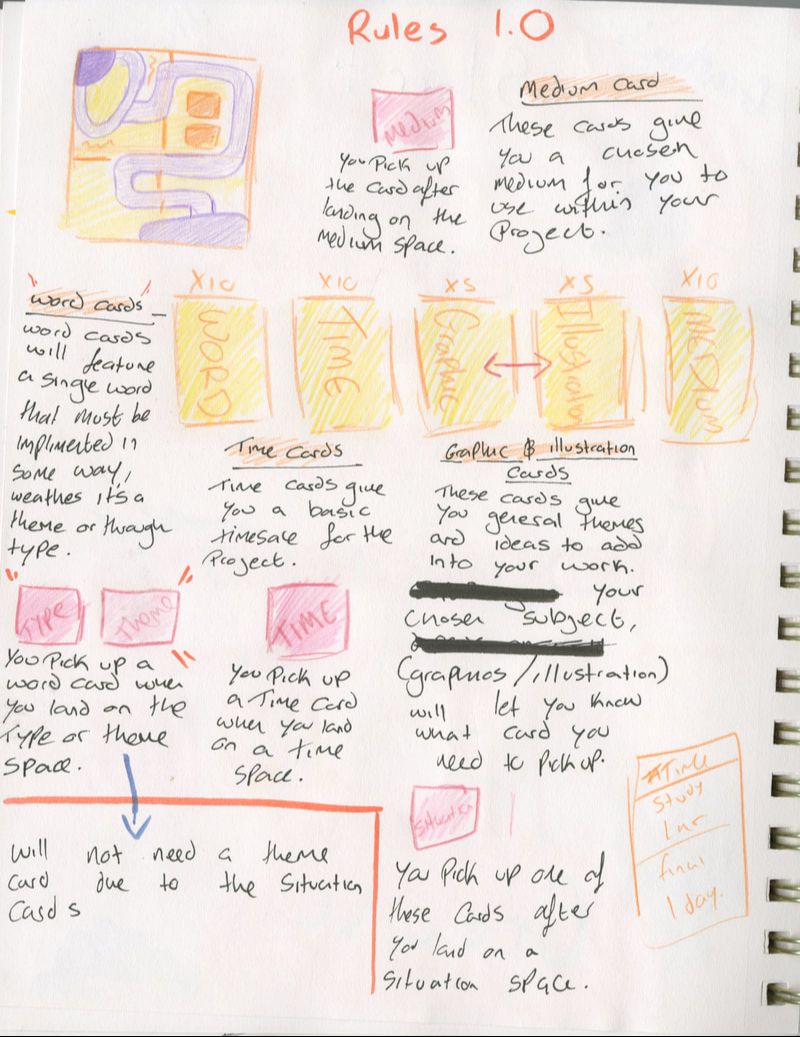 Rules 1.0
Medium
You Pick up
the card after
landing on the
Medium Space.
Medium Card
These cards give
you a chosen
medium for you to
use within your
Project.
X10
X10
X5
X5
X10
WORD
TIME
Graphic
Illustration
MEDIUM
Word cards
word cards
will feature
a single word
that must be
implimented in
some way,
weathes it's a
theme or through
type.
Time Cards
Time cards give
you a basic
timesale for the
Project.
Graphic & illustration
Cards
These cards give
you general themes
and ideas to add
into your work.
your
chosen subject,
(graphics/illustration)
will let you know
what card you
need to pick up.
TYPE
Theme
You Pick up a
word card when
you land on the
Type or theme
Space.
TIME
You Pick up
a Time Card
when you land
on a time
space.
Will not need a theme
card due to the Situation
Cards
Situation
You Pick up one of
these Cards after
you land on a
Situation space.
Time
Study
1 hr
final
1 day.